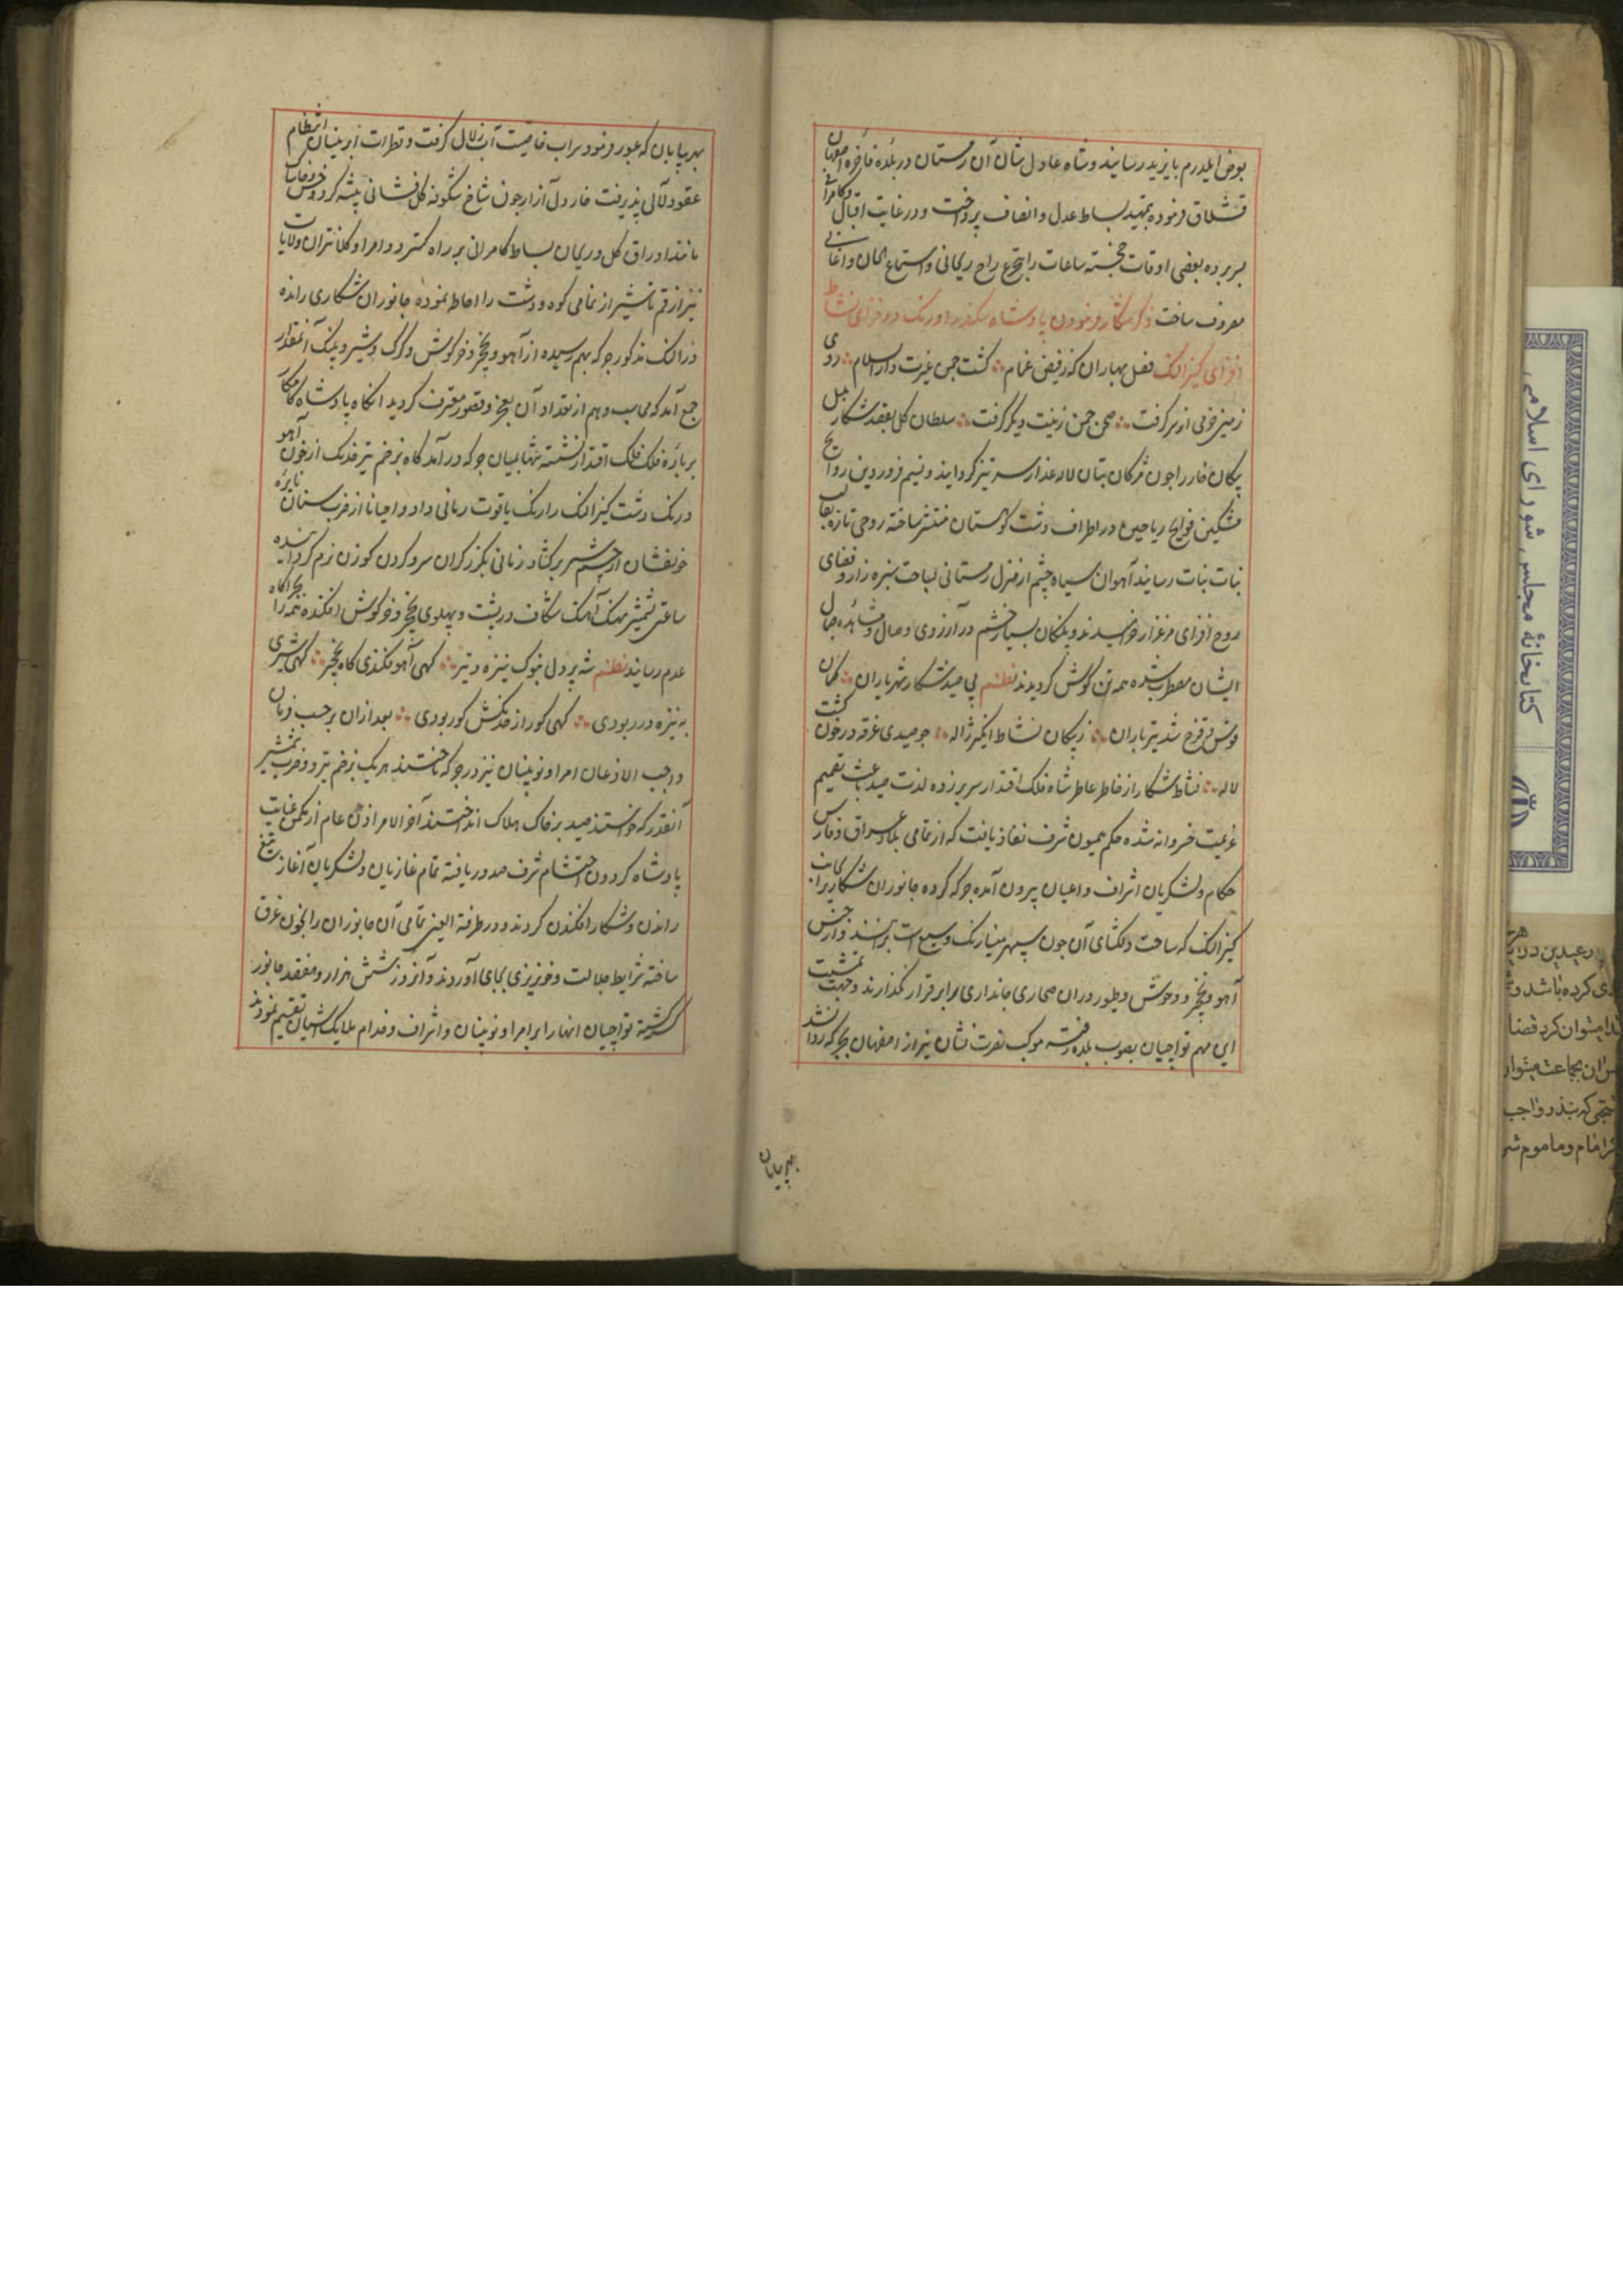 بعرض ایلدرم بایزید رسانیدند و شاه عادل نشان آن زمستان در بلده فاخره اصفهان
قشلاق فرموده بتمهید بساط عدل و انصاف پرداخت و در غایت اقبال و کامرانی
بسر برده بعضی اوقات خجسته ساعات را بتجرع راح ریحانی و استماع الحان و اغانی
مصروف ساخت ذکر شکار فرمودن پادشاه سکندر اورنک در فزای نشاط
افزای کیزالنک فصل بهاران که ز فیض غمام ∴ کشت چمن غیرت دارالسلام ∴ روی
زمین خرمی از سر کرفت ∴ صحن چمن زینت دیکر کرفت ∴ سلطان کل بقصد شکار بلبل
پیکان خار را چون مژکان بتان لاله عذار سر تیز کردانید و نسیم فروردین روایح
مشکین فوایح ریاحین در اطراف دشت کوهستان منتشر ساخته روحی تازه بقالب
نبات نبات رسانید آهوان سیاه چشم از منزل زمستانی بساحت سبزه زار و فضای
روح افزای مرغزار خرامیدند و پلنکان بسیار خشم در آرزوی وصال و مشاهده جمال
ایشان مضطرب شده همه تن کوش کردیدند نظم پی صید شکار شهریاران ∴ کمان
قوس قزح شد تیر باران ∴ ز پیکان نشاط انکیز ژاله ∴ چو صیدی غرقه در خون کشت
لاله ∴ نشاط شکار از خاطر عاطر شاه فلک اقتدار سر برزده لذت صید باعث تصمیم
عزیمت خسروانه شده حکم همیون شرف نفاذ یافت که از تمامی بلاد عراق و فارس
حکام و لشکریان اشراف و اعیان بیرون آمده جرکه کرده جانوران شکاری را بجانب
کیزالنک که ساحت دلکشای آن چون سپهر مینا رنک وسیع است برانند و از جنس
آهو و نخجیر و وحوش و طیور در آن صحاری جانداری برابر قرار نکذارند و جهت تمشیت
این مهم تواچیان بصوب بلده رفته موکب نصرت نشان نیز از اصفهان بجرکه روا نشد
بهر بیابان
بهر بیابان که عبور فرمود سراب خاصیت آب زلال کرفت و قطرات ابر نیسان انتظام
عقود لآلی پذیرفت خار دل آزار چون شاخ شکوفه کل فشانی پیشه کرد و خس و خاشاک
مانند اوراق کل و ریحان بساط کامرانی بر راه کسترد و امرا و کلانتران ولایات
نیز از قم تا شیراز تمامی کوه و دشت را احاطه نموده جانوران شکاری رانده
در النک مذکور جرکه بهم رسیده از آهو و نخجیر و خرکوش و کرک و شیر و پلنک آنمقدار
جمع آمد که محاسب وهم از تعداد آن بعجز و قصور معترف کردید انکاه پادشاه کامکار
بر باره فلک اقتدار نشسته تنها بمیان جرکه در آمد کاه بزخم تیر خدنک از خون آهو
در نک دشت کیزالنک را رنک یاقوت رمانی داد و احیانا از ضرب سنان نایره
خونفشان از چشم شیر بر کشاد زمانی بکرز کران سر و کردن کوزن نرم کردانیده
ساعتی شمشیر نهنک آهنک شکاف در پشت و پهلوی نخجیر و خرکوش افکنده همه را بچراکاه
عدم رسانید نظم شه پر دل بنوک نیزه و تیر ∴ کهی آهو فکندی کاه نخجیر ∴ کهی شیری
به نیزه در ربودی ∴ کهی کور از خدنکش کور بودی ∴ بعد از آن بر حسب فرمان
واجب الاذعان امرا و نوینان نیز در جرکه تاختند هر یک بزخم تیر و ضرب شمشیر
آنقدر که خواستند صید بر خاک هلاک انداختند آخر الامر اذن عام از مکمن عنایت
پادشاه کردون احتشام شرف صدور یافته تمام غازیان و لشکریان آغاز تیغ
راندن و شکار افکندن کردند و در طرفة العین تمامی آن جانوران را بخون غرق
ساخته شرایط جلالت و خونریزی بجای آوردند و آنروز شش هزار و هفتصد جانور
کشته کشته تواچیان انها را بر امرا و نوینان و اشراف و خدام ملایک آشیان تقسیم نمودند
کتابخانه مجلس شورای اسلامی